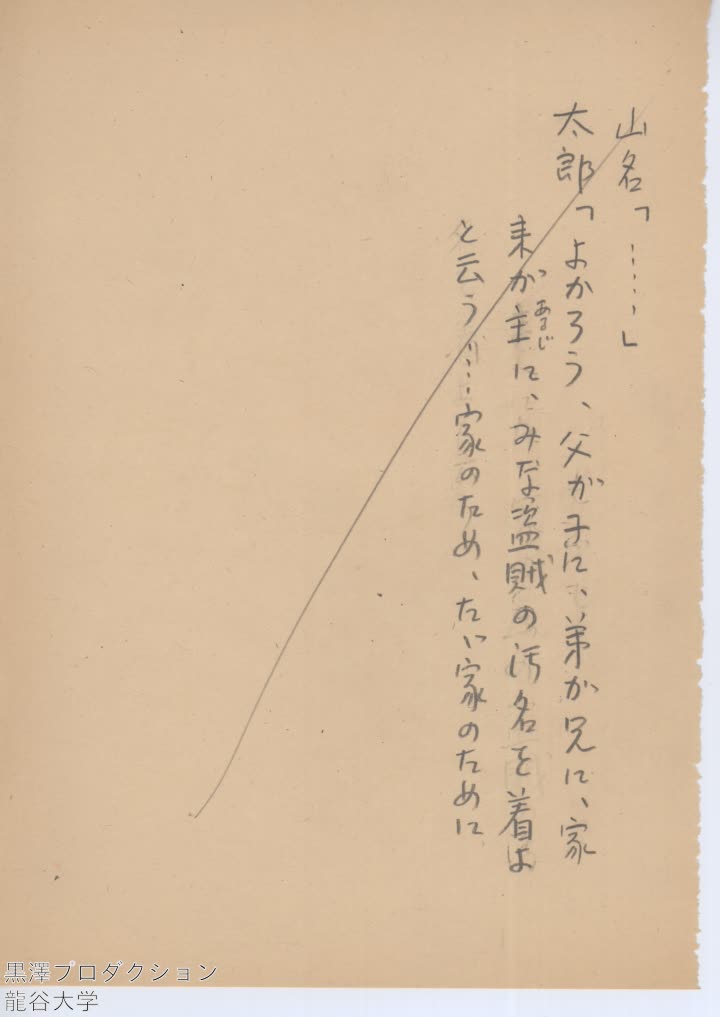 山名「……」
太郎「よかろう、父が子に、弟が兄に、家
来が主に、みな盗賊の汚名を着よ
あるじ
と云う……家のため、たゞ家のために
黒澤プロダクション
龍谷大学